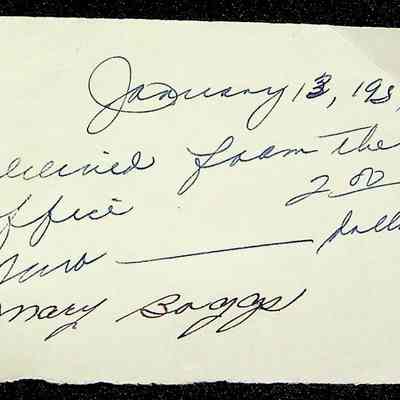 January 13, 195
eceived from the
office 2.00
Two ——— Dolla
Mary Boggs